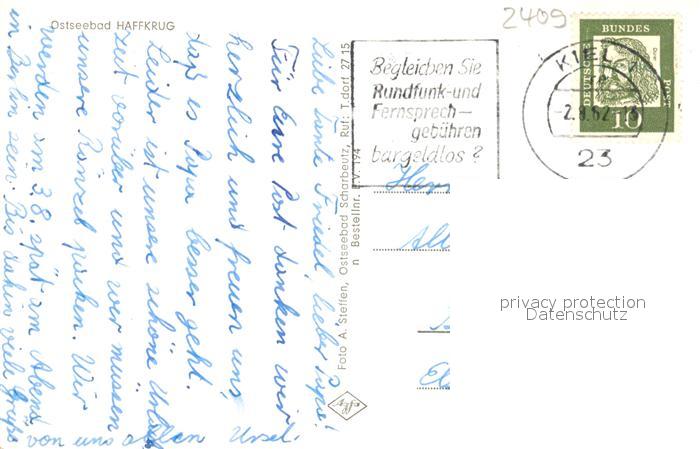 Ostseebad HAFFKRUG
2409
Liebe Tante Friedel, lieber Papa!
Für Eure Post danken wir
herzlich und freuen uns,
daß es Papa besser geht.
Leider ist unsere schöne
Zeit vorüber und wir müssen
unsere Ränzel packen. Wir
werden am 3.8. spät am Abend
in Berlin sein. Bis dahin viel Grüße
von uns allen Ursel.
Foto A. Steffen, Ostseebad Scharbeutz, Ruf: T.dorf 27 15
Bestellnr.
Agfa
Begleichen Sie
Rundfunk-und
Fernsprech-
gebühren
bargeldlos?
KIEL
23
DEUTSCHE BUNDESPOST
10
privacy protection
Datenschutz